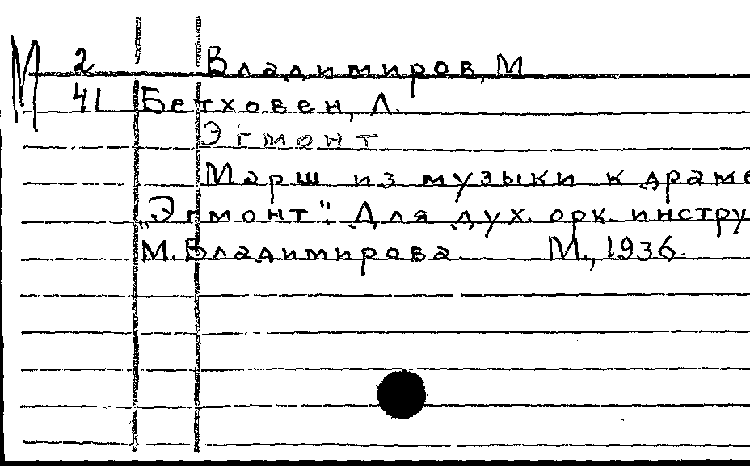 М 2 Владимиров, М
41 Бетховен, Л.
Эгмонт
Марш из музыки к драме
„Эгмонт". Для дух. орк. инстру
М. Владимирова М., 1936